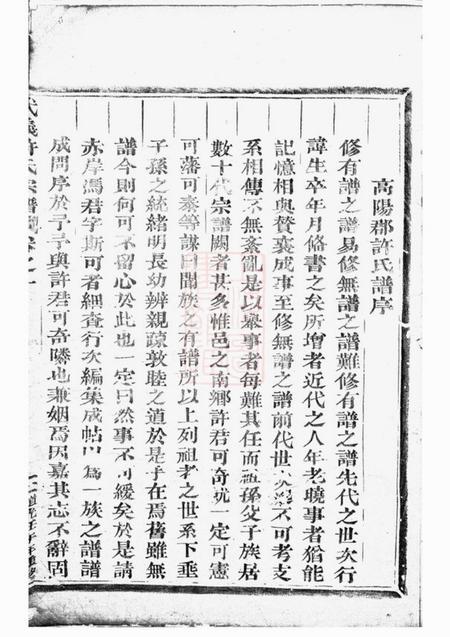 高陽郡許氏譜序
修有譜之譜易修無譜之譜難修有譜之譜先代之世次行
諱生卒年月俻書之矣所增者近代之人年老曉事者猶能
記憶相與贊襄成事至修無譜之譜前代世次 不可考支
系相傳不無紊亂是以舉事者每難其任而祖孫父子族居
數十代宗譜闕者甚多惟邑之南鄉許君可奇 一定可憲
可藩可泰等謀曰聞族之有譜所以上列祖考之世系下垂
子孫之統緒明長幼辨親疏敦睦之道於是乎在焉舊雖無
譜今則何可不留心於此也一定曰然事不可緩矣於是請
赤岸馮君字斯可者細查行次編集成帖以為一族之譜譜
成問序於予予與許君可奇隣也兼姻焉因嘉其志不辭固
武義許氏宗譜 卷之一
道光壬午年重修